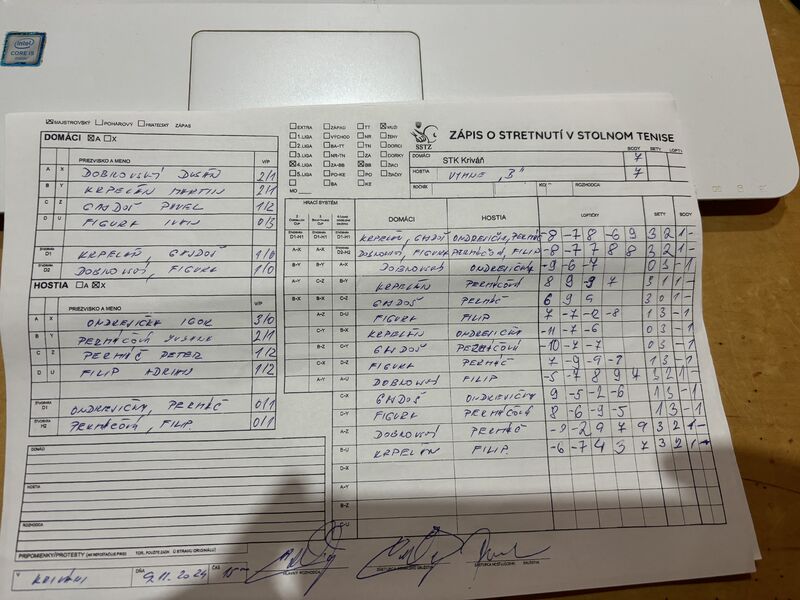 intel
CORE i5
MAJSTROVSKÝ POHÁROVÝ PRIATEĽSKÝ ZÁPAS
DOMÁCI A X
PRIEZVISKO A MENO V/P
A X DOBROVSKÝ DUŠAN 2/1
B Y KRPELÁN MARTIN 2/1
C Z GAJDOŠ PAVEL 1/2
D U FIGURA IVAN 0/3
D1 KRPELÁN, GAJDOŠ 1/0
D2 DOBROVSKÝ, FIGURA 1/0
HOSTIA A X
PRIEZVISKO A MENO V/P
A X ONDREVIČKA IGOR 3/0
B Y PERMÁČOVÁ ZUZANA 2/1
C Z PERMÁČ PETER 1/2
D U FILIP ADRIAN 1/2
D1 ONDREVIČKA, PERMÁČ 0/1
PERMÁČOVÁ, FILIP 0/1
DOMÁCI
HOSTIA
ROZHODCA
PRIPOMIENKY/PROTESTY
V KRIVÁNI DŇA 9.11.2024 ČAS 15
EXTRA ZÁPAD TT MUŽI
1.LIGA VÝCHOD NR ŽENY
2.LIGA BA-TT TN DORCI
3.LIGA NR-TN ZA DORKY
4.LIGA ZA-BB BB ŽIACI
5.LIGA PO-KE PO ŽIAČKY
BA-KE KE
MO
SSTZ
ZÁPIS O STRETNUTÍ V STOLNOM TENISE
BODY SETY LOPT.
DOMÁCI STK Kriváň 7
HOSTIA VYHNE "B" 7
ROČNÍK ROZHODCA
HRACÍ SYSTÉM
DOMÁCI HOSTIA LOPTIČKY SETY BODY
KRPELÁN, GAJDOŠ ONDREVIČKA, PERMÁČ -8 -7 8 -6 9 3 2 1 -
DOBROVSKÝ, FIGURA PERMÁČOVÁ, FILIP -8 -7 7 8 8 3 2 1 -
DOBROVSKÝ ONDREVIČKA -9 -6 -7 0 3 - 1
KRPELÁN PERMÁČOVÁ 8 9 -9 7 3 1 1 -
GAJDOŠ PERMÁČ 6 9 9 3 0 1 -
FIGURA FILIP 7 -7 -2 -8 1 3 - 1
KRPELÁN ONDREVIČKA -11 -7 -6 0 3 - 1
GAJDOŠ PERMÁČOVÁ -10 -7 -7 0 3 - 1
FIGURA PERMÁČ 7 -9 -9 -7 1 3 - 1
DOBROVSKÝ FILIP -5 -7 8 9 7 3 2 1 -
GAJDOŠ ONDREVIČKA 9 -5 -2 -6 1 3 - 1
FIGURA PERMÁČOVÁ 8 -6 -9 -5 1 3 - 1
DOBROVSKÝ PERMÁČ -9 -2 9 7 9 3 2 1 -
KRPELÁN FILIP -6 -7 4 3 7 3 2 1 -